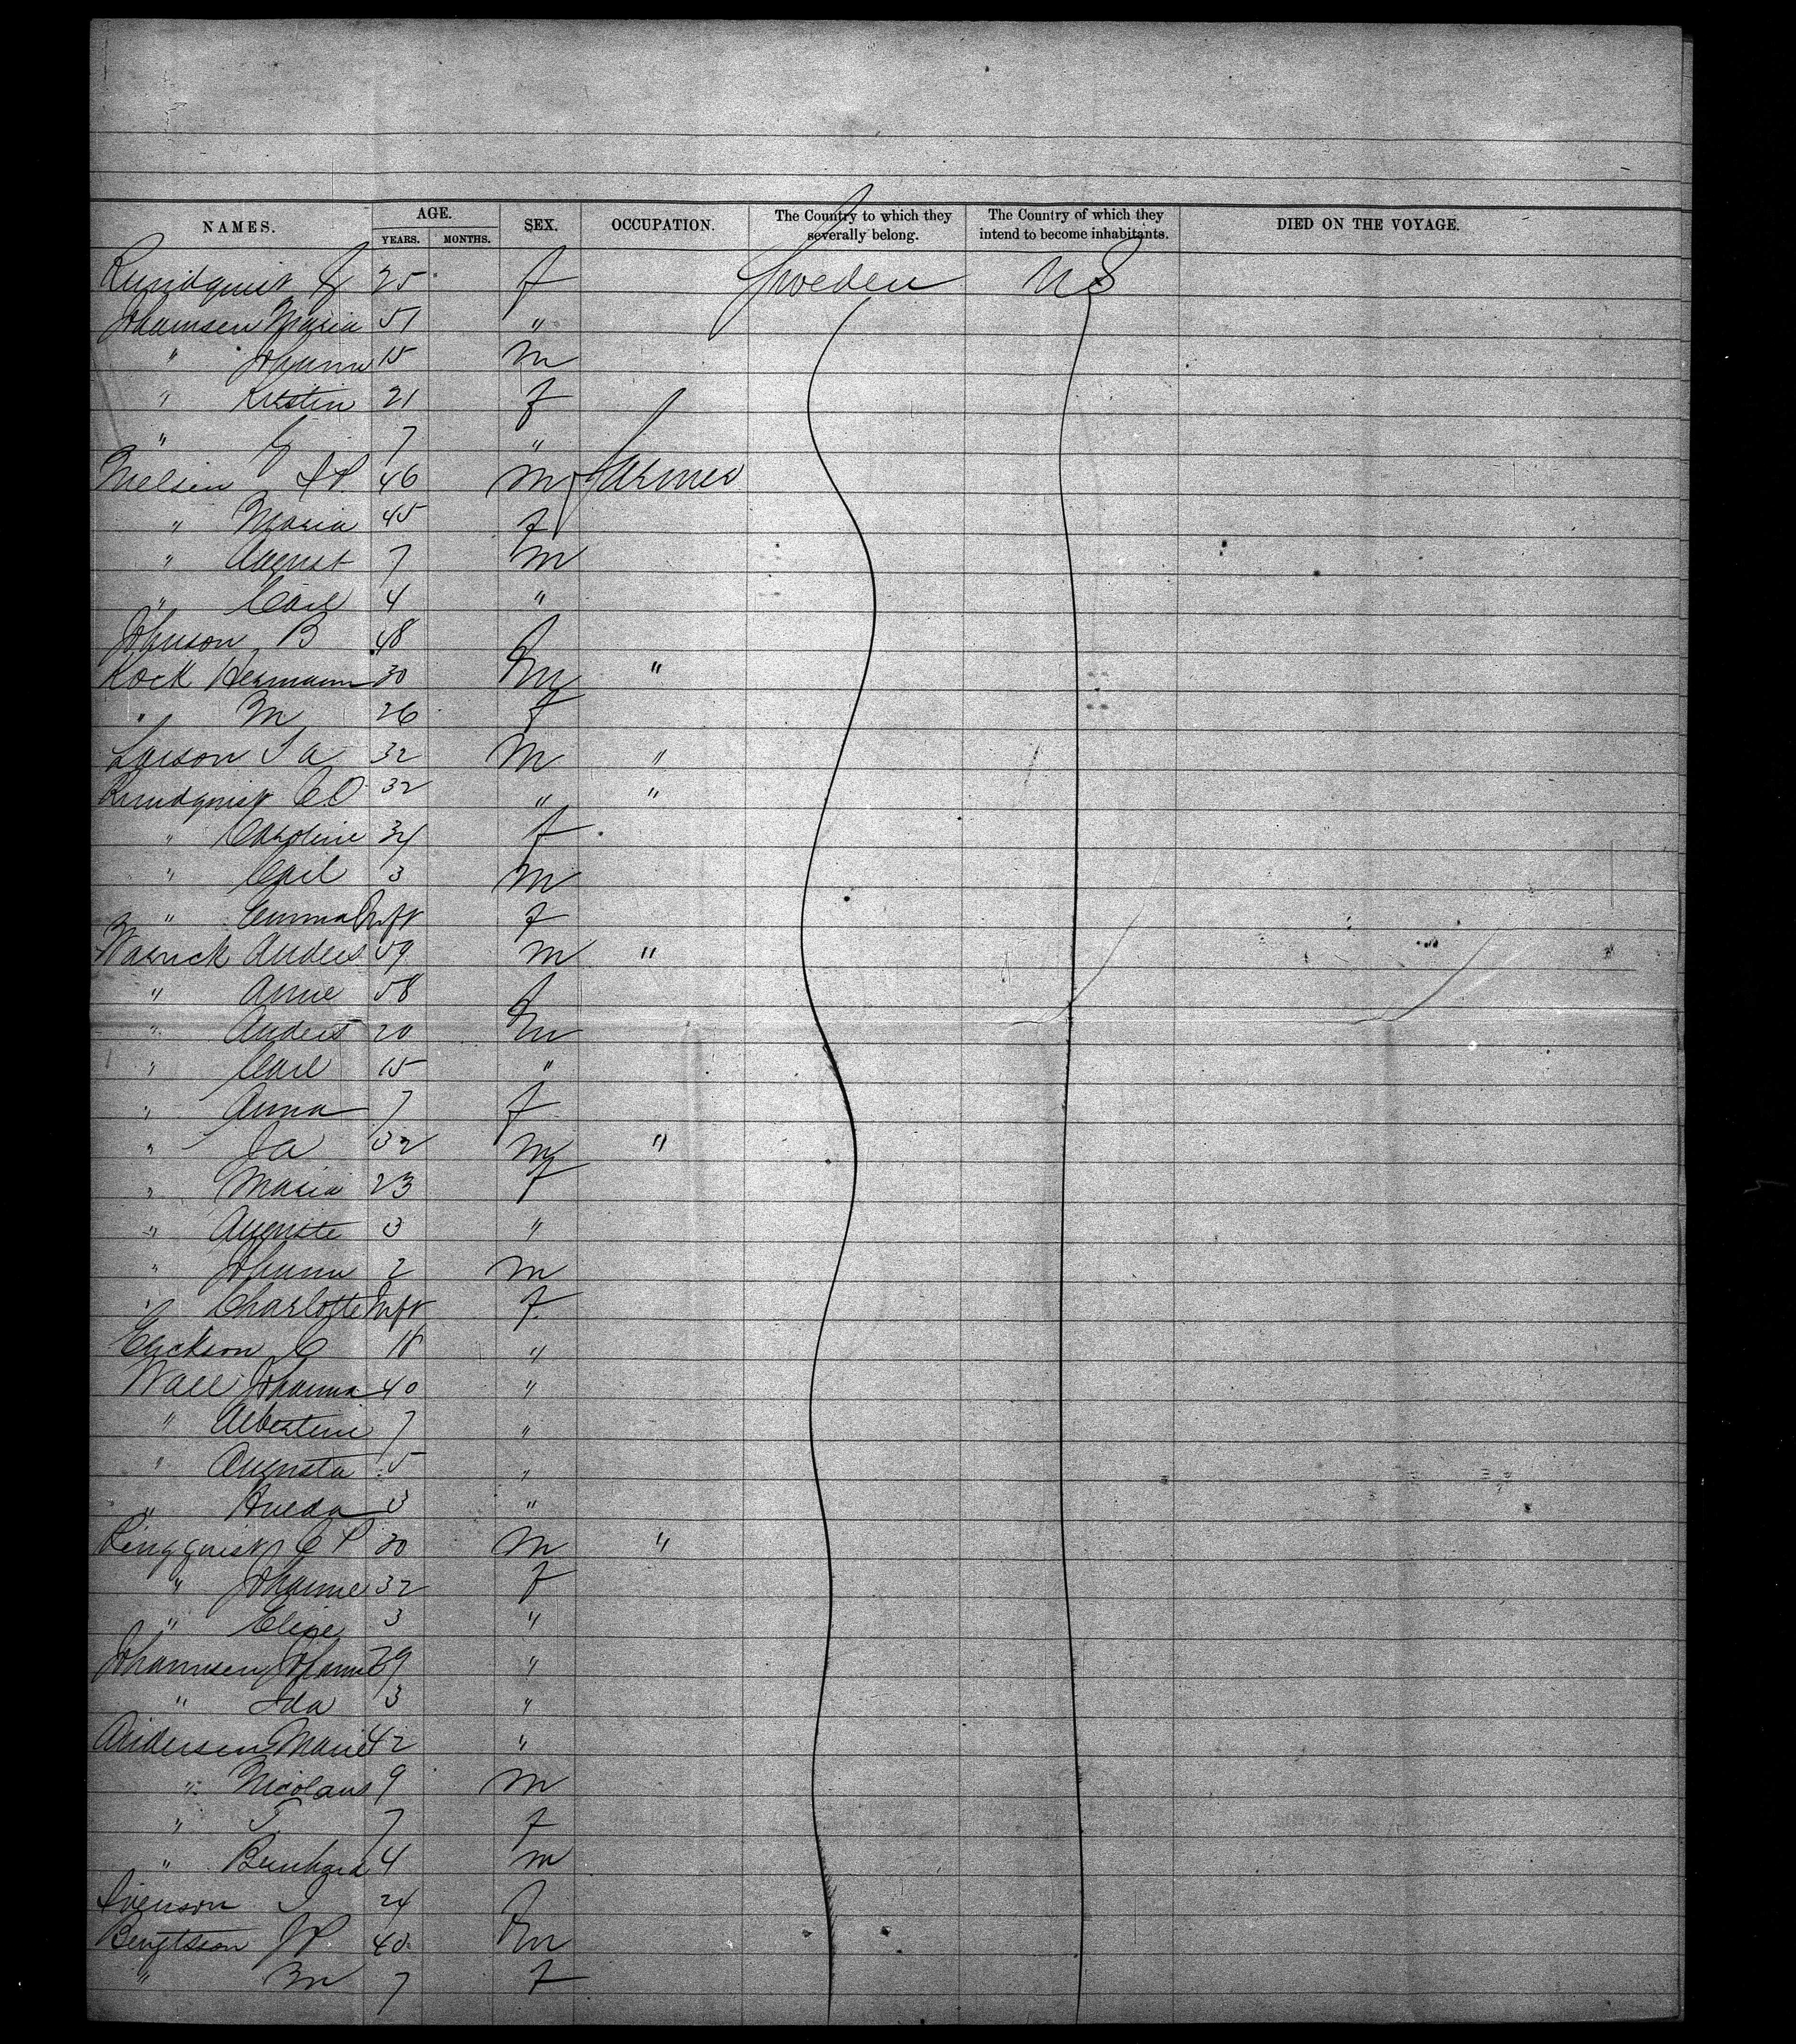 NAMES. AGE. YEARS. MONTHS. SEX. OCCUPATION. The Country to which they severally belong. The Country of which they intend to become inhabitants. DIED ON THE VOYAGE.
Rundquist 25 f Sweden US
Johannsen Maria 51 "
" Johann 15 m
" Kirstin 21 f
" 7 "
Nielsen J P. 46 m Farmer
" Maria 45 f
" August 7 m
" Carl 4 "
Johnson B 48 f
Kock Hermann 30 m "
" M 26 f
Larson J a 32 m "
Rundquist C O 32 " "
" Caroline 34 f
" Carl 3 m
" Emma Inft f
Warnick Anders 59 m "
" Anne 58 f
" Anders 20 m
" Carl 15 "
" Anna 7 f
" Ja 32 m "
" Maria 23 f
" Auguste 3 "
" Johann 2 m
" Charlotte Inft f
Erickson C 18 "
Wall Johanna 40 "
" Albertine 7 "
" Augusta 5 "
" Hulda 3 "
Ringquist C P 30 m "
" Johanne 32 f
" Elise 3 "
Johannsen Johanne 29 "
" Ida 3 "
Andersen Marie 42 "
" Nicolaus 9 m
" T 7 f
" Bernhard 4 m
Svenson J 24 f
Bengtsson J P 40 m
" M 7 f